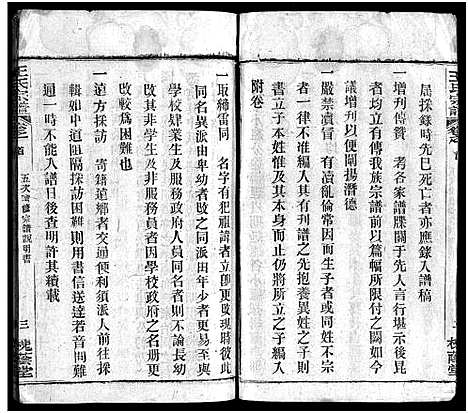 居採錄時先已死亡者亦應錄入譜稿
一增刊傳贊 考各家譜牒關于先人言行增示後昆
者均立有傳我族宗譜前以篇幅所限付之缺如今
議增刊以便闡揚潛德
一嚴禁瀆宗 有瀆亂倫常因而生子者或同宗無嗣
者一律不准編入其有刊譜之先抱養異姓之子則
書撫以示區別其本身而止所立之子編入
附卷
一取締雷同 名字有犯祖諱者立即更改現諱彼此
同名異派由卑幼者改之同派由年少者更易至與
學校肄業生及服務政府人員同名者則不論長幼
改其非學生及非服務員者因學校政府之名册更
改較爲困難也
一遠方採訪 寄籍遠鄉者交通便利須派人前往採
輯如中道阻隔採訪困難則用書信送達若音問難
通一時不能入譜日後查明許其續載
王氏宗譜
卷之首
五次續修宗譜說明書
三 槐蔭堂